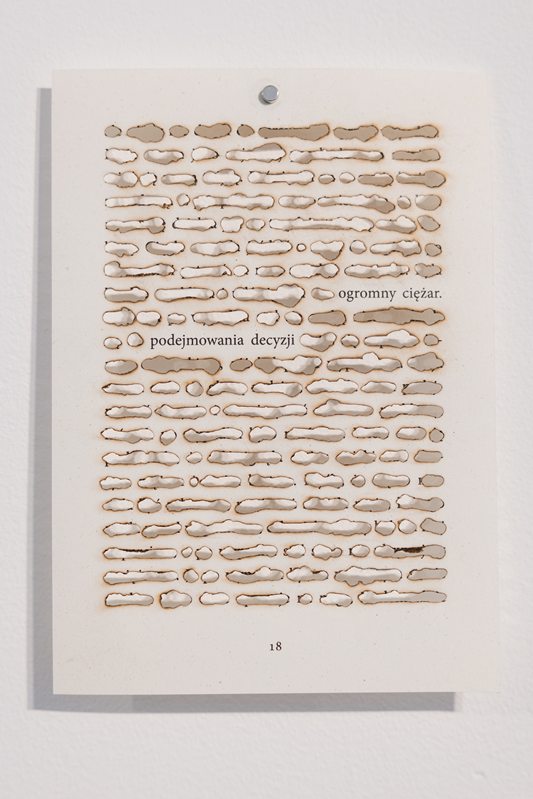 ogromny ciężar.
podejmowania decyzji
18